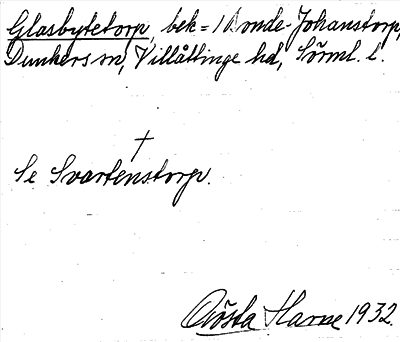 Glasbytetorp, bek = Bonde-Johanstorp,
Dunkers sn, Villåttinge hd, Sörml. l.
†
Se Svartenstorp.
Gösta Harne 1932.